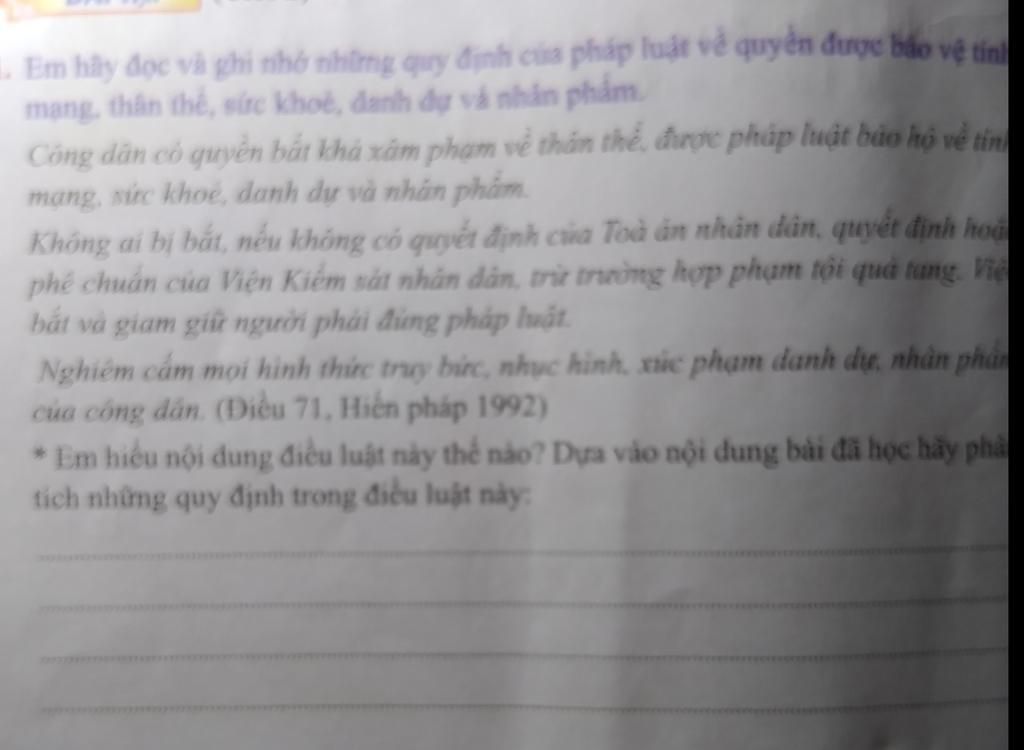 . Em hãy đọc và ghi nhớ những quy định của pháp luật về quyền được bảo vệ tính
mạng, thân thể, sức khoẻ, danh dự và nhân phẩm.
Công dân có quyền bất khả xâm phạm về thân thể, được pháp luật bảo hộ về tính
mạng, sức khoẻ, danh dự và nhân phẩm.
Không ai bị bắt, nếu không có quyết định của Toà án nhân dân, quyết định hoặ
phê chuẩn của Viện Kiểm sát nhân dân, trừ trường hợp phạm tội quả tang. Việ
bắt và giam giữ người phải đúng pháp luật.
Nghiêm cấm mọi hình thức truy bức, nhục hình, xúc phạm danh dự, nhân phẩm
của công dân. (Điều 71, Hiến pháp 1992)
* Em hiểu nội dung điều luật này thế nào? Dựa vào nội dung bài đã học hãy phâ
tích những quy định trong điều luật này: